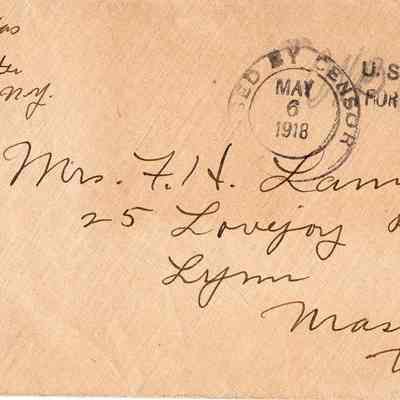 N.Y.
SED BY CENSOR
MAY
6
1918
U.S
FOR
Mrs. F. H. Lam
25 Lovejoy
Lynn
Mas